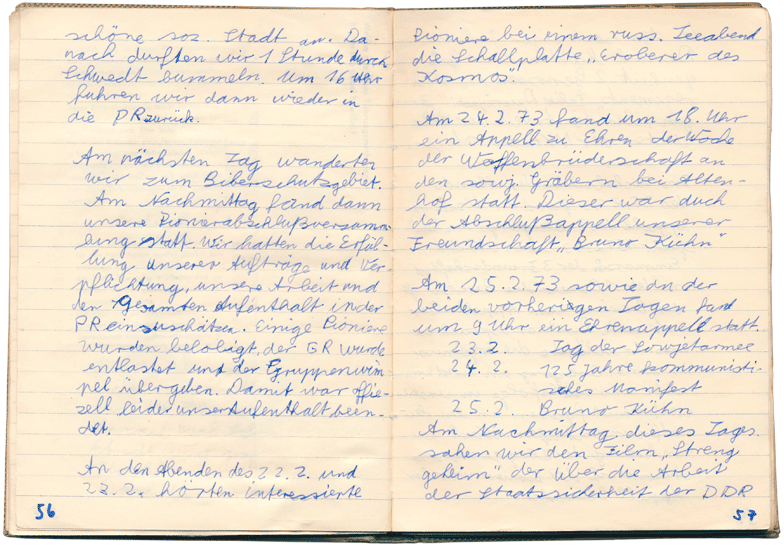 schöne soz. Stadt an. Da-
nach durften wir 1 Stunde durch
Schwedt bummeln. Um 16 Uhr
fuhren wir dann wieder in
die PR zurück.
Am nächsten Tag wanderten
wir zum Biberschutzgebiet.
Am Nachmittag fand dann
unsere Pionierabschlußversamm
lung statt. Wir hatten die Erfül-
lung unserer Aufträge und Ver
pflichtung, unsere Arbeit und
den gesamten Aufenthalt in der
PR einzuschätzen. Einige Pioniere
wurden belobigt, der GR wurde
entlastet und der Gruppenwim
pel übergeben. Damit war offie-
zell leider unser Aufenthalt been-
det.
An den Abenden des 22.2. und
23.2. hörten interessierte
56
Pioniere bei einem russ. Teeabend
die Schallplatte „Eroberer des
Kosmos".
Am 24.2.73 fand um 18. Uhr
ein Appell zu Ehren der Woche
der Waffenbrüderschaft an
den sowj. Gräbern bei Alten-
hof statt. Dieser war duch
der Abschlußappell unserer
Freundschaft „Bruno Kühn"
Am 25.2.73 sowie an den
beiden vorherigen Tagen fand
um 9 Uhr ein Ehrenappell statt.
23.2. Tag der Sowjetarmee
24.2. 125 Jahre Kommunisti-
sches Manifest
25.2. Bruno Kühn
Am Nachmittag dieses Tages
sahen wir den Film „Streng
geheim" der über die Arbeit
der Staatssicherheit der DDR
57